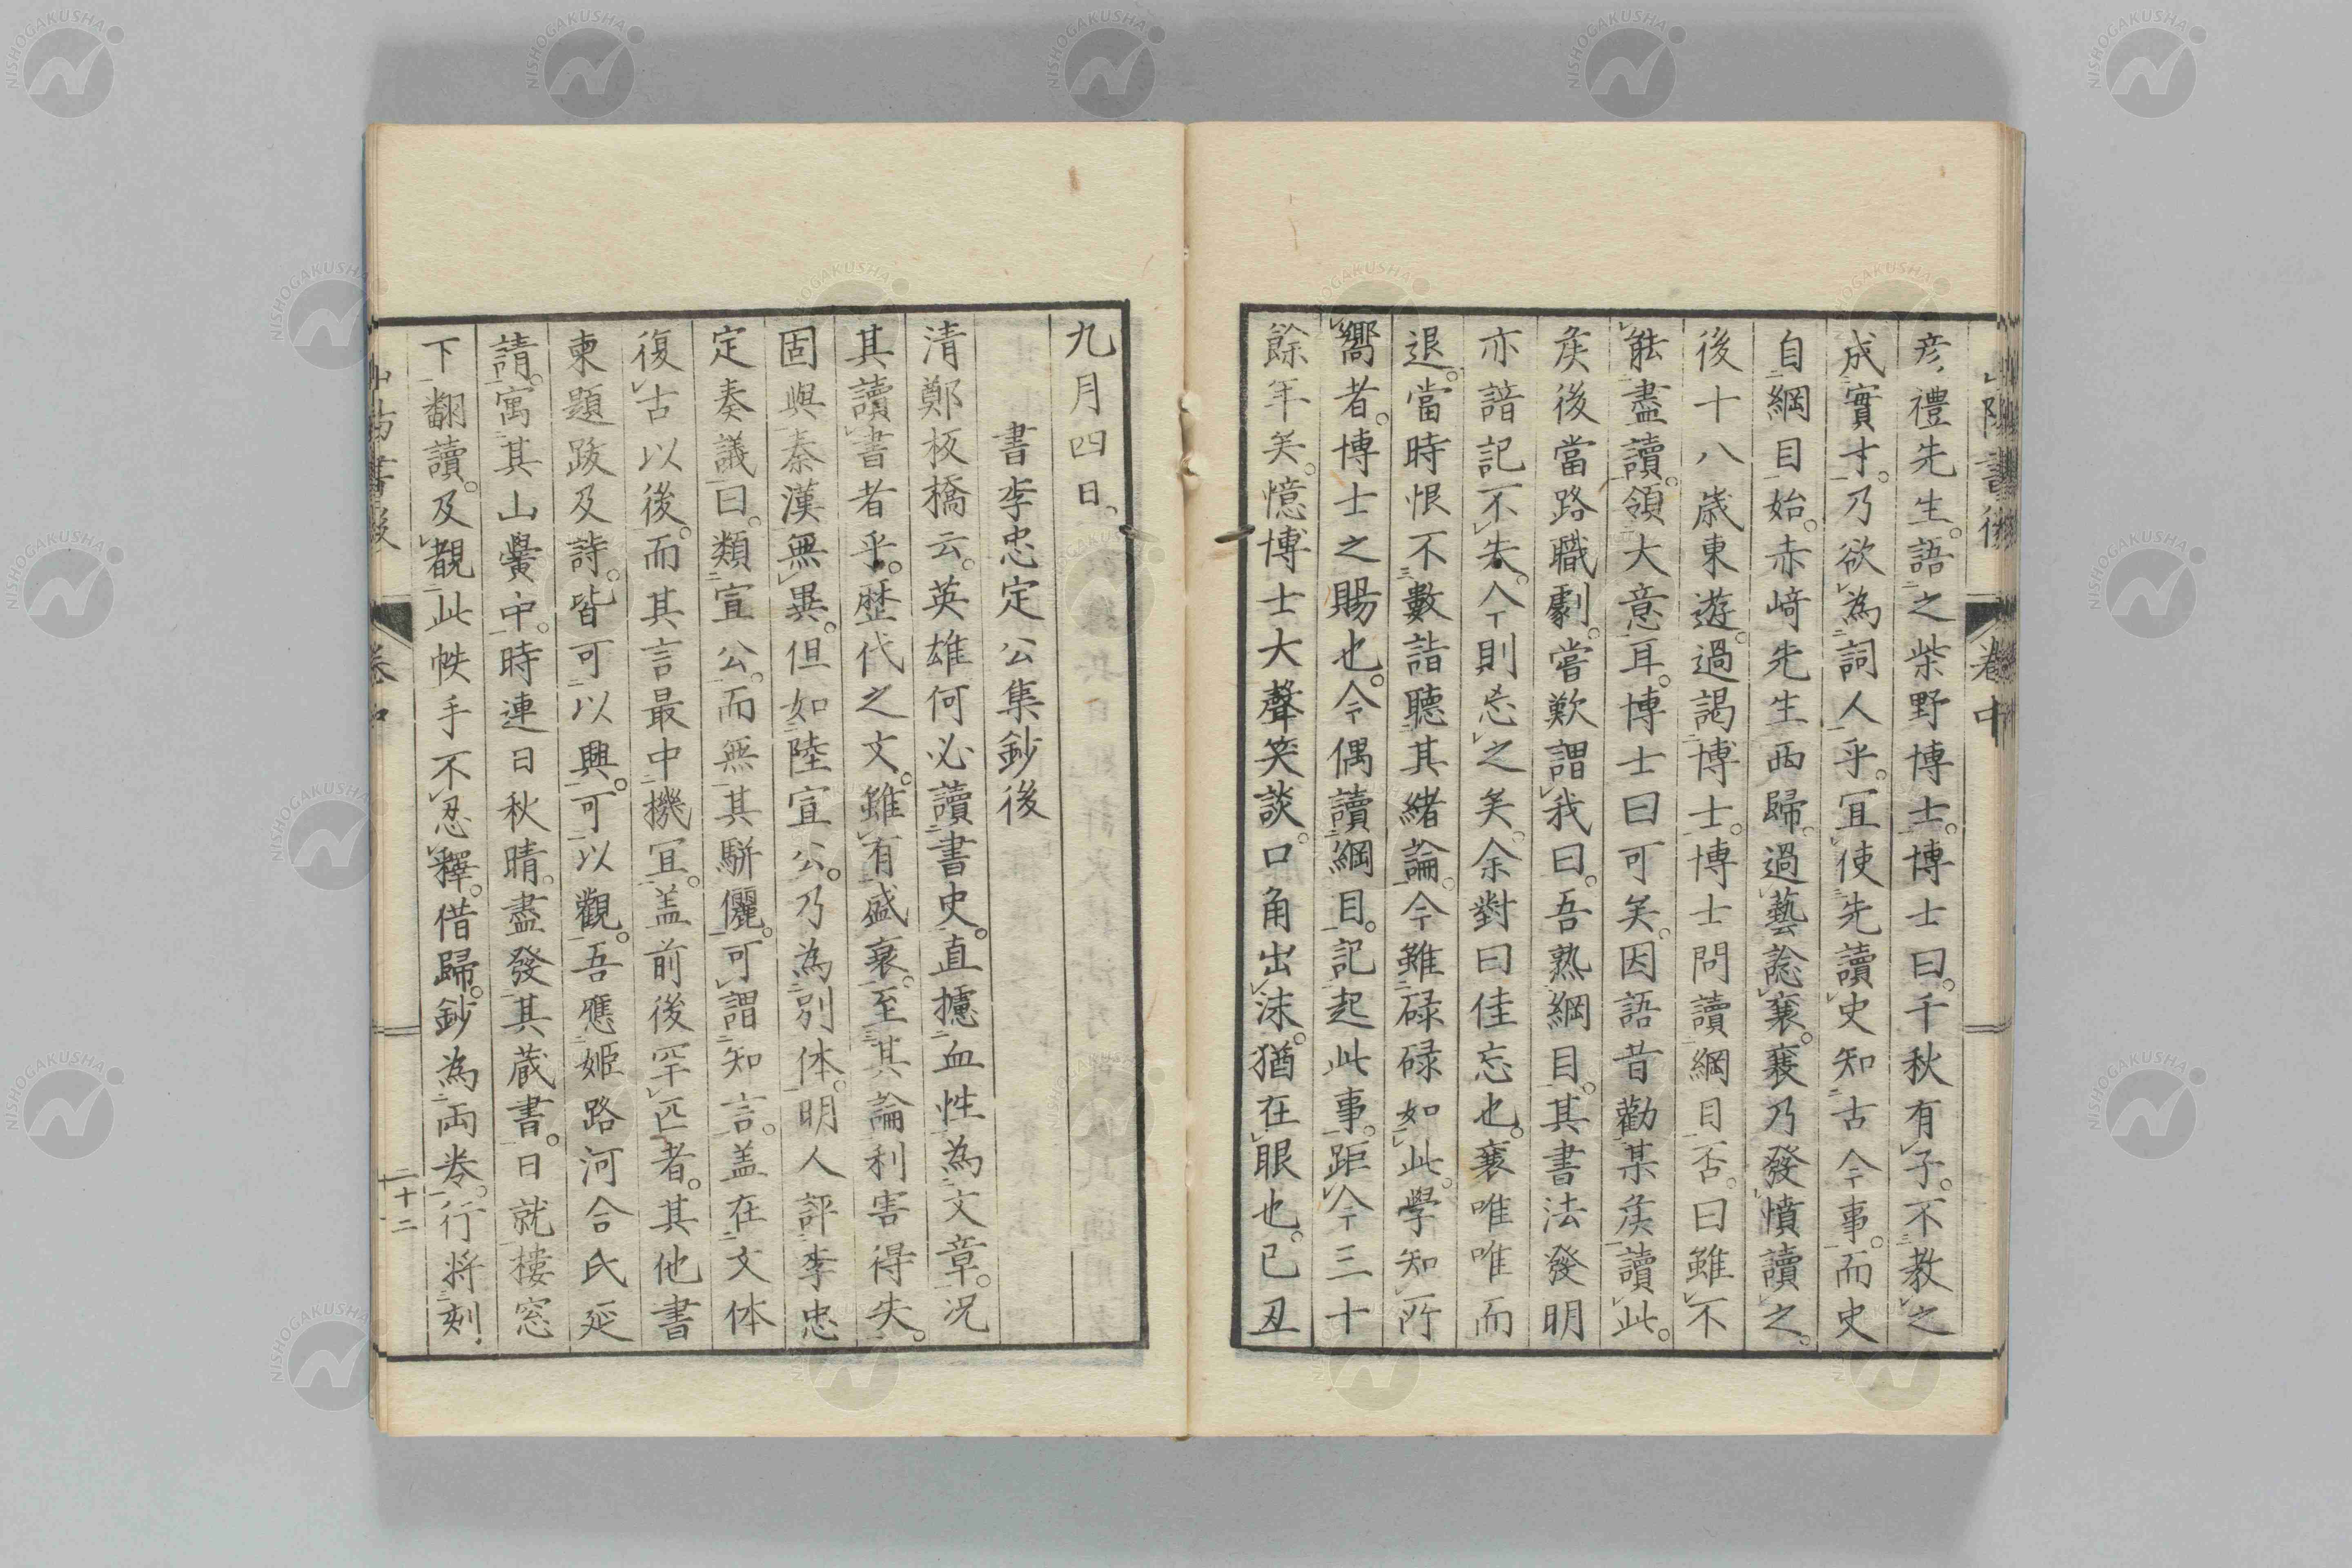 彦禮先生。語之柴野博士。博士曰。千秋有子。不教之
成實才。乃欲為詞人乎。冝使先讀史知古今事。而史
自綱目始。赤﨑先生西歸。過藝諗襄。襄乃發憤讀之。
後十八歳東遊。過謁博士。博士問讀綱目否。曰雖不
能盡讀。領大意耳。博士曰可矣。因語昔勸某矦讀此。
矦後當路職劇。嘗歎謂我曰。吾熟綱目。其書法發明
亦諳記不失。今則忘之矣。余對曰佳忘也。襄唯唯而
退。當時恨不數詣聽其緒論。今雖碌碌如此。學知所
嚮者。博士之賜也。今偶讀綱目。記起此事。距今三十
餘年矣。憶博士大聲笑談。口角出沫。猶在眼也。已丑
九月四日。
書李忠定公集鈔後
清鄭板橋云。英雄何必讀書史。直攄血性為文章。况
其讀書者乎。歴代之文。雖有盛衰。至其論利害得失。
固與秦漢無異。但如陸宣公。乃為別体。明人評李忠
定奏議曰。類宣公。而無其駢儷。可謂知言。盖在文体
復古以後。而其言最中機冝。盖前後罕匹者。其他書
柬題跋及詩。皆可以興。可以觀。吾應姬路河合氏延
請。寓其山黌中。時連日秋晴。盡發其蔵書。日就樓窓
下翻讀。及觀此帙手不忍釋。借歸。鈔為両巻。行将刻
卷中
二十二